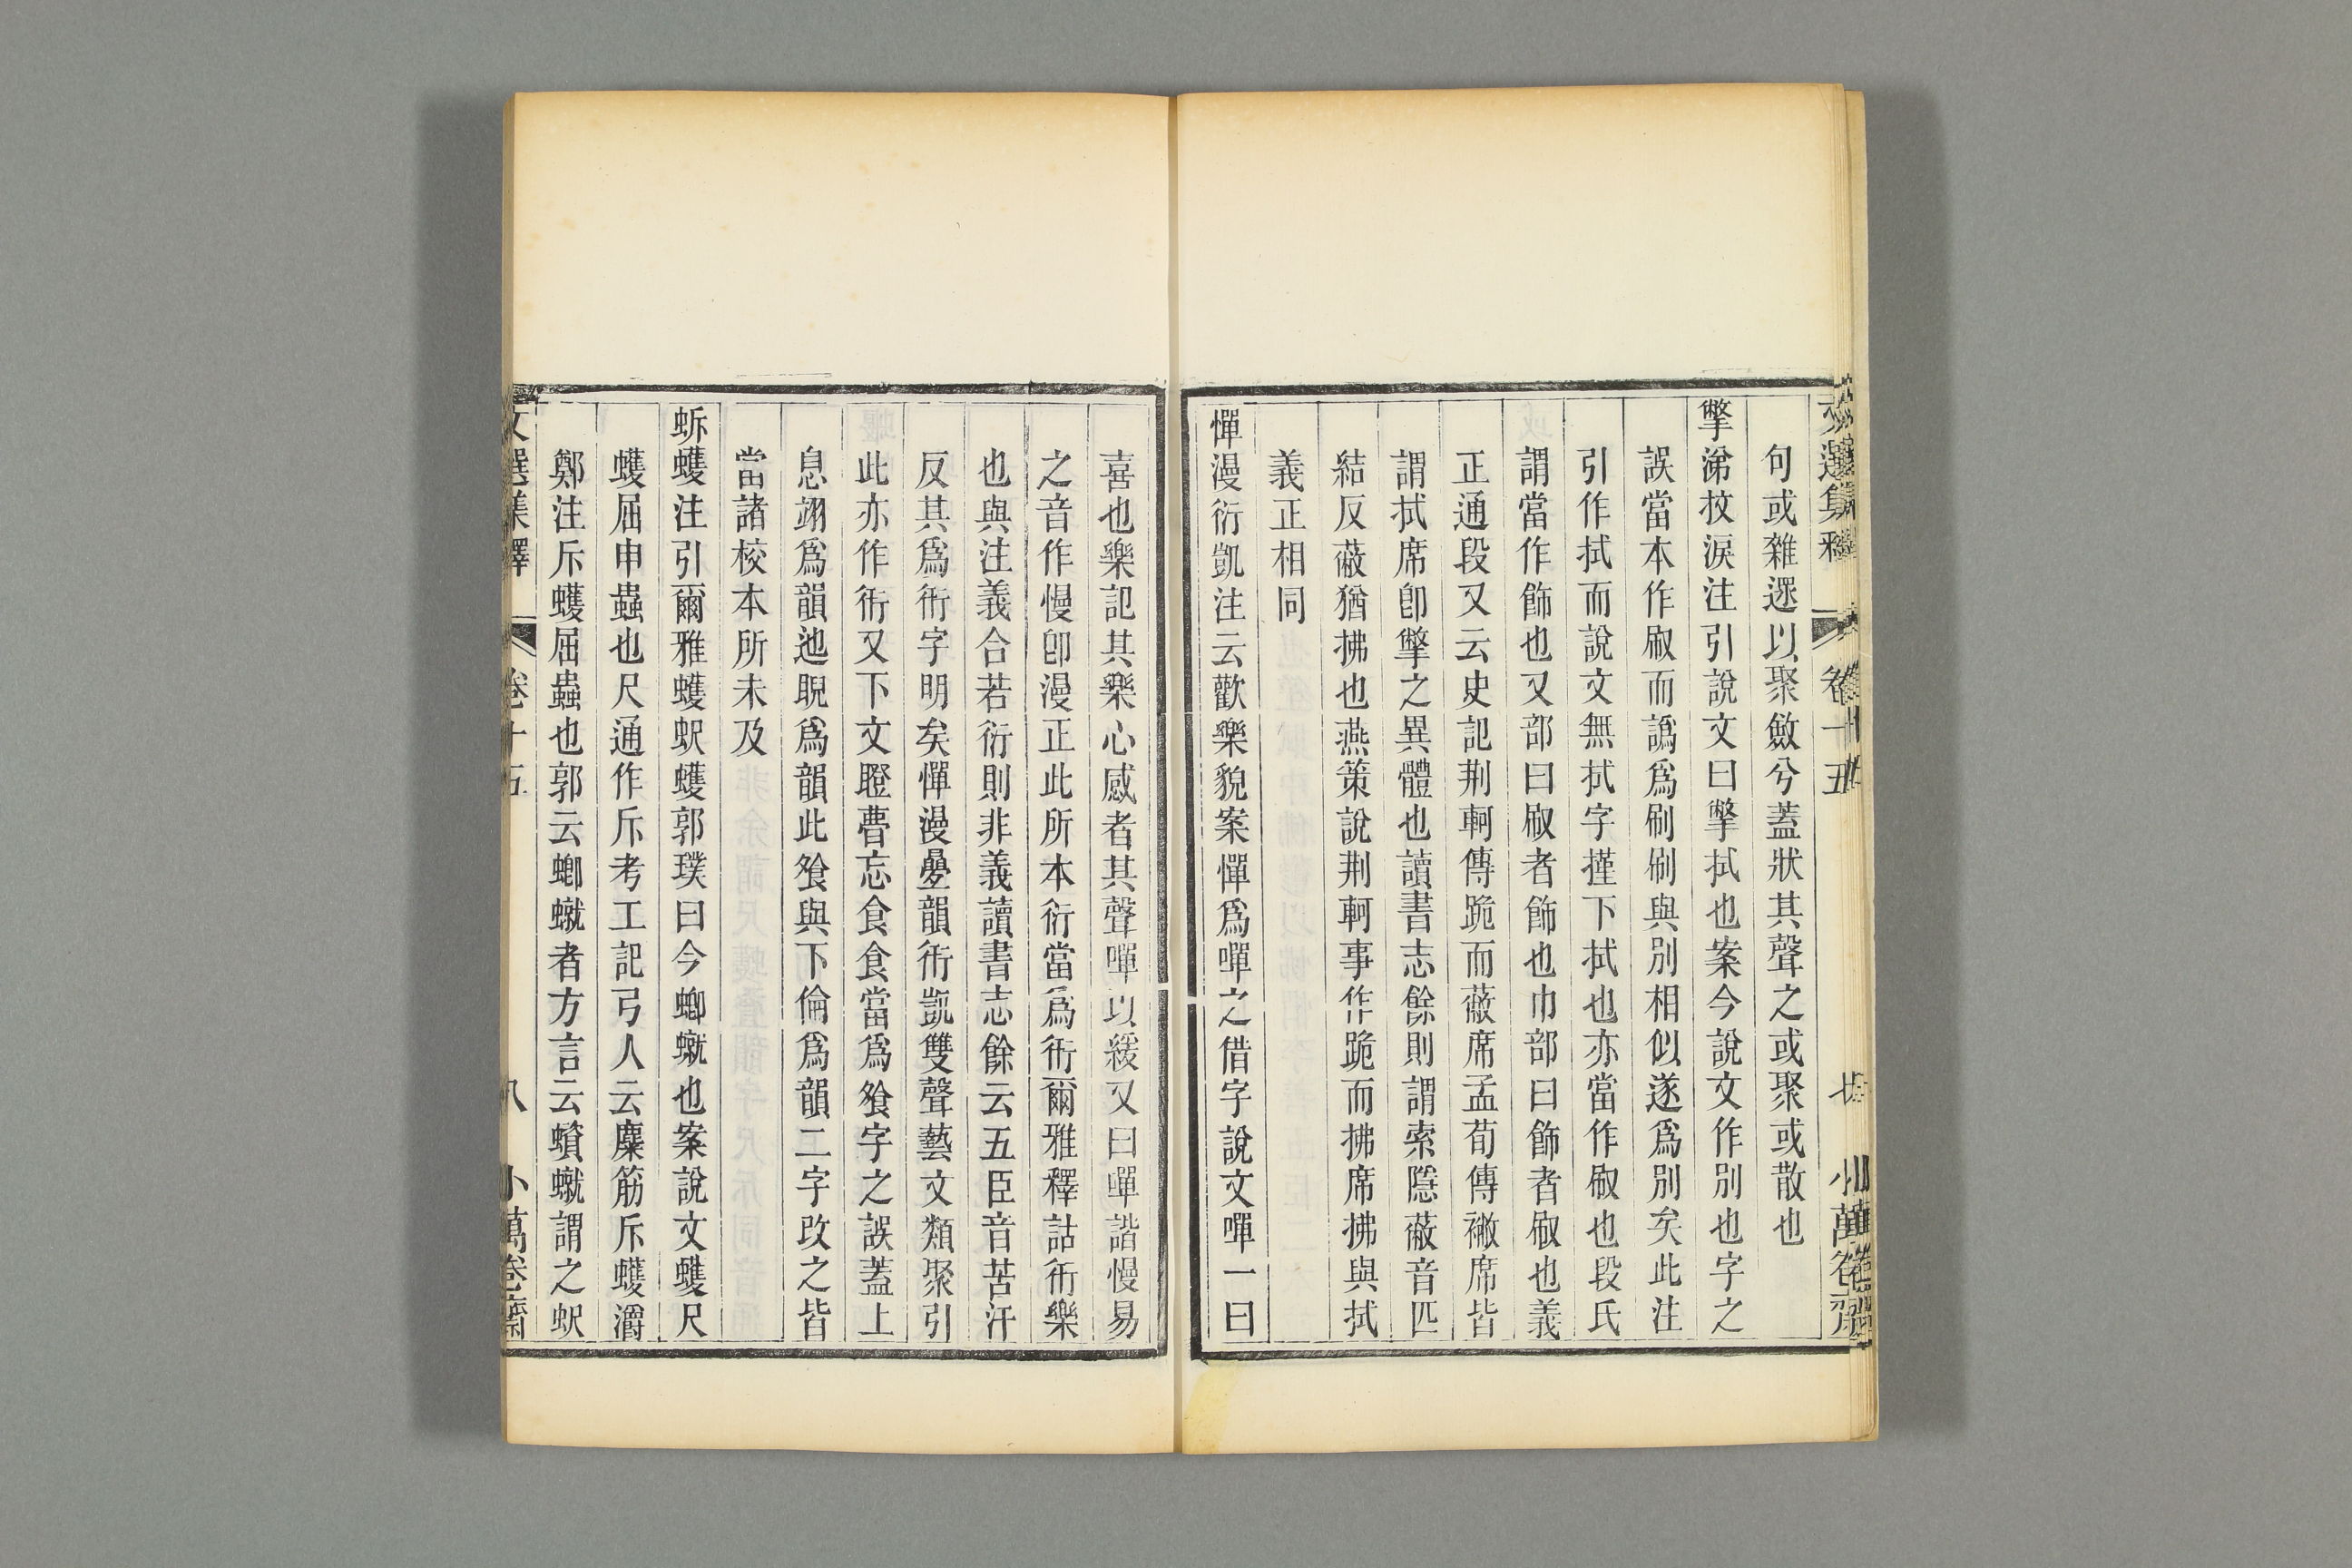 句或雜遝以聚斂兮蓋狀其聲之或聚或散也
擥涕抆淚注引說文曰擥拭也案今說文作別也字之
誤當本作㕞而譌爲刷刷與別相似遂爲別矣此注
引作拭而說文無拭字揰下拭也亦當作㕞也段氏
謂當作飾也又部曰㕞者飾也巾部曰飾者㕞也義
正通段又云史記荆軻傳跪而蔽席孟荀傳襒席皆
謂拭席卽擥之異體也讀書志餘則謂索隱蔽音匹
結反蔽猶拂也燕策說荆軻事作跪而拂席拂與拭
義正相同
憚漫衍凱注云歡樂貌案憚爲嘽之借字說文嘽一曰
喜也樂記其樂心感者其聲嘽以緩又曰嘽諧慢易
之音作慢卽漫正此所本衍當爲衎爾雅釋詁衎樂
也與注義合若衍則非義讀書志餘云五臣音苦汗
反其爲衎字明矣憚漫疊韻衎凱雙聲藝文類聚引
此亦作衎又下文瞪瞢忘食食當爲飧字之誤蓋上
息翊爲韻迆睨爲韻此飧與下倫爲韻二字改之皆
當諸校本所未及
蚸蠖注引爾雅蠖蚇蠖郭璞曰今蝍䗥也案說文蠖尺
蠖屈申蟲也尺通作斥考工記弓人云麋筋斥蠖灂
鄭注斥蠖屈蟲也郭云蝍䗥者方言云蠀䗥謂之蚇
文選集釋 卷十五 八 小萬卷齋